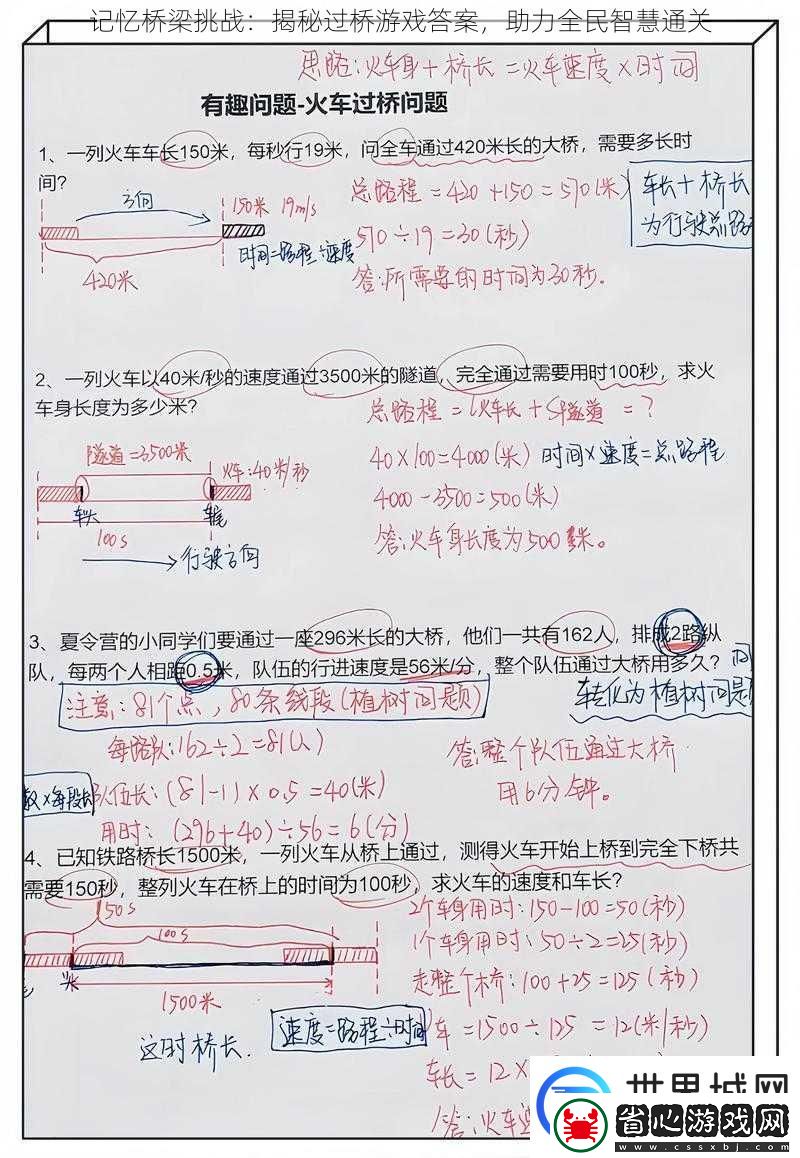 记忆桥梁挑战：揭秘过桥游戏答案，助力全民智慧通关
思路：火车身+桥长=火车速度×时间
有趣问题-火车过桥问题
1、一列火车车长150米，每秒行19米，问全车通过420米长的大桥，需要多长时
间？
总路程=420+150=570(米)
车长+桥长
为行驶总路
方向
150米 19m/s
570÷19=30(秒)
时间=路程÷速度
420米
答:所需要的时间为30秒.
2、一列火车以40米/秒的速度通过3500米的隧道，完全通过需要用时100秒，求火
车身长度为多少米？
总路程=S火车长+S隧道=?
隧道=3500米
火车:40米/秒
40×100=4000(米) 时间×速度=总路程
4000-3500=500(米)
车头
车尾
100s
答:火车身长度为500米。
行驶方向
3、夏令营的小同学们要通过一座296米长的大桥，他们一共有162人，排成2路纵
队，每两个人相距0.5米，队伍的行进速度是56米/分，整个队伍通过大桥用多久？
注意:81个点,80条线段(植树问题)
转化为植树问题
每路队:162÷2=81(人)
答:整个队伍通过大桥
用6分钟。
数×每段长
队伍长:(81-1)×0.5=40(米)
用时:(296+40)÷56=6(分)
4、已知铁路桥长1500米，一列火车从桥上通过，测得火车开始上桥到完全下桥共
需要150秒，整列火车在桥上的时间为100秒，求火车的速度和车长？
150s
2个车身用时:150-100=50(秒)
100s
1个车身用时:50÷2=25(秒)
走整个桥:100+25=125(秒)
1500米
速度=路程÷时间
车=1500÷125=12(米/秒)
这时桥长.
车长=12×
答:火车速
世界城网
省心游戏网
www.cssxbj.com